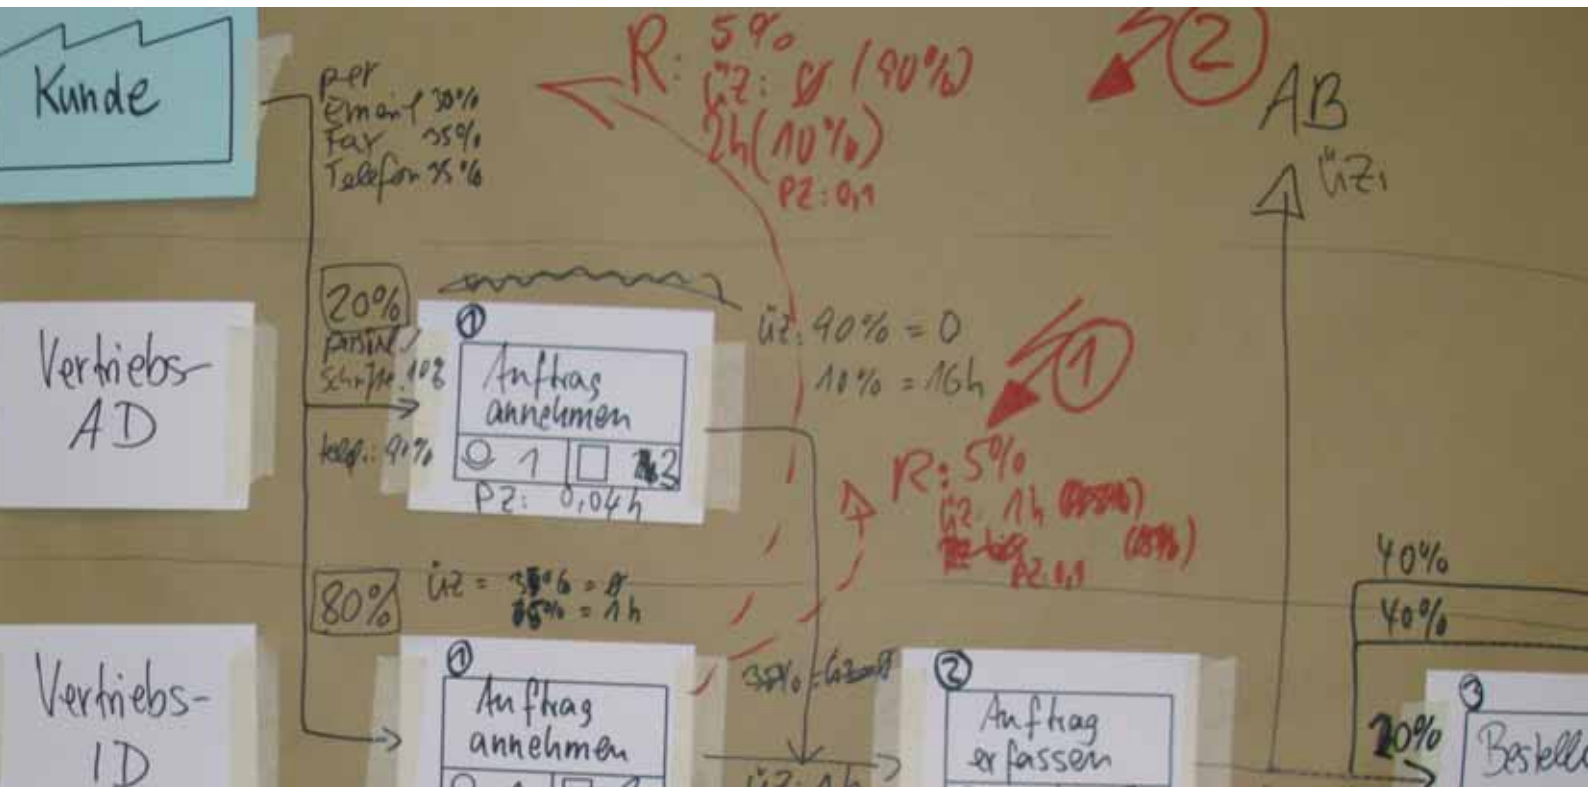 Kunde
per
Email 30%
Fax 35%
Telefon 35%
R: 5%
ÜZ: Ø (90%)
2h (10%)
PZ: 0,1
2
AB
ÜZ:
Vertriebs-
AD
20%
telef.: 90%
1
Auftrag
annehmen
1
3
PZ: 0,04h
ÜZ: 90% = 0
10% = 16h
1
R: 5%
ÜZ 1h
PZ: 0,1
80%
ÜZ =
= 1h
Vertriebs-
ID
1
Auftrag
annehmen
ÜZ: 1h
2
Auftrag
erfassen
40%
40%
20%
3